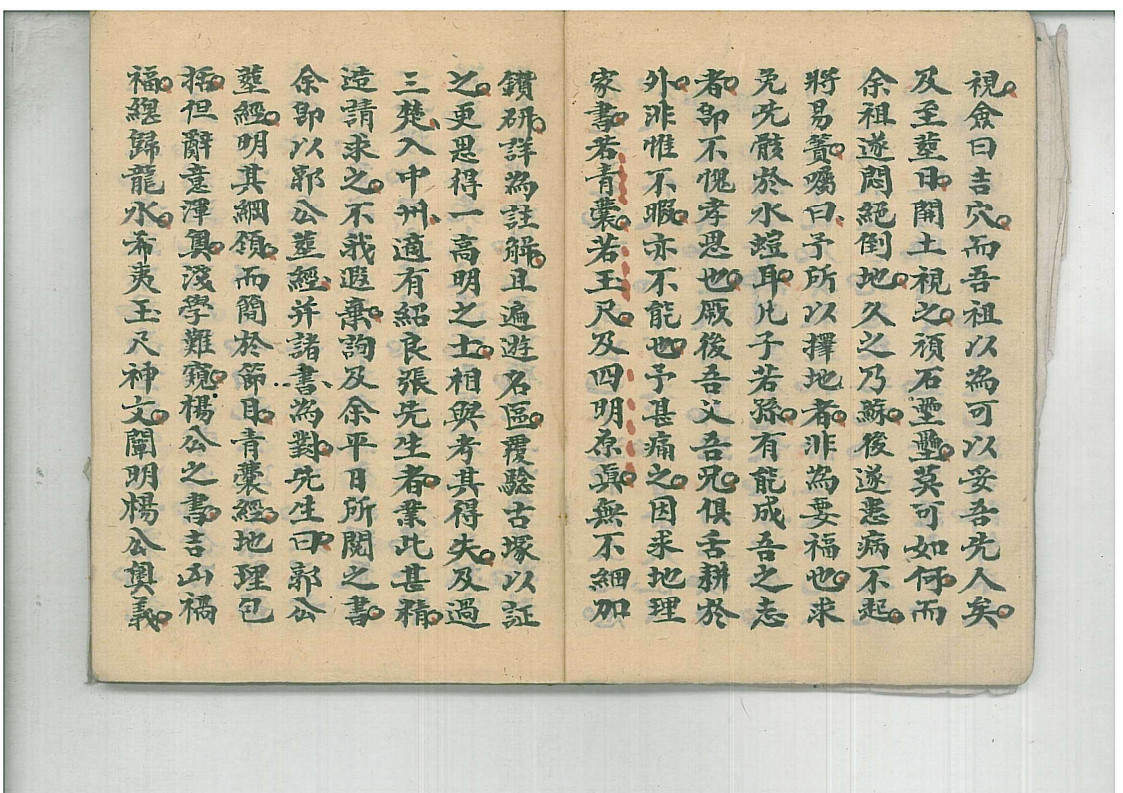 視僉曰吉穴而吾祖以為可以妥吾先人矣
及至塟日開土視之頑石壘壘莫可如何而
余祖遂悶絕倒地久之乃蘇後遂患病不起
將易簀囑曰予所以擇地者非為要福也求
免先骸於水螘耳凡子若孫有能成吾之志
者即不愧孝思也厥後吾父吾兄俱舌耕於
外非惟不暇亦不能也予甚痛之因求地理
家書若青囊若玉尺及四明原真無不細加
鑽研詳為註解且遍遊名區覆驗古塚以証
之更思得一高明之士相與考其得失及過
三楚入中州適有紹良張先生者業此甚精
造請求之不我遐棄詢及余平日所閱之書
余即以郭公塟經并諸書為對先生曰郭公
塟經明其綱領而簡於節目青囊經地理已
括但辭意渾奧淺學難窺楊公之書吉凶禍
福總歸龍水希夷玉尺神文闡明楊公奥義